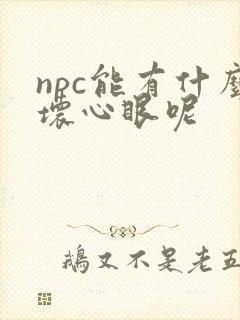 npc能有什麼
壞心眼呢
鵝又不是老五